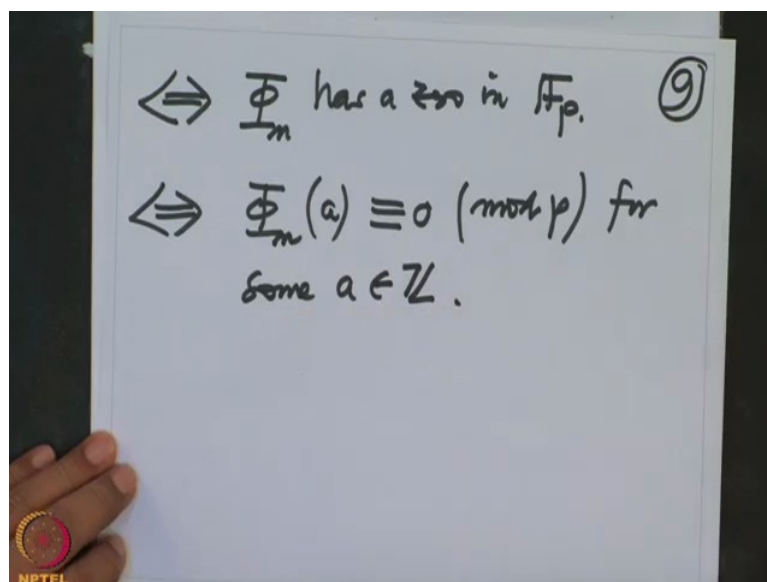 ⟺ Φₘ has a zero in 𝔽ₚ. ⑨
⟺ Φₘ(a) ≡ 0 (mod p) for
some a ∈ ℤ.
NPTEL